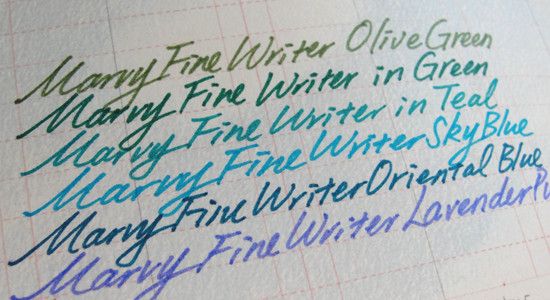 Marvy Fine Writer Olive Green
Marvy Fine Writer in Green
Marvy Fine Writer in Teal
Marvy Fine Writer Sky Blue
Marvy Fine Writer Oriental Blue
Marvy Fine Writer Lavender